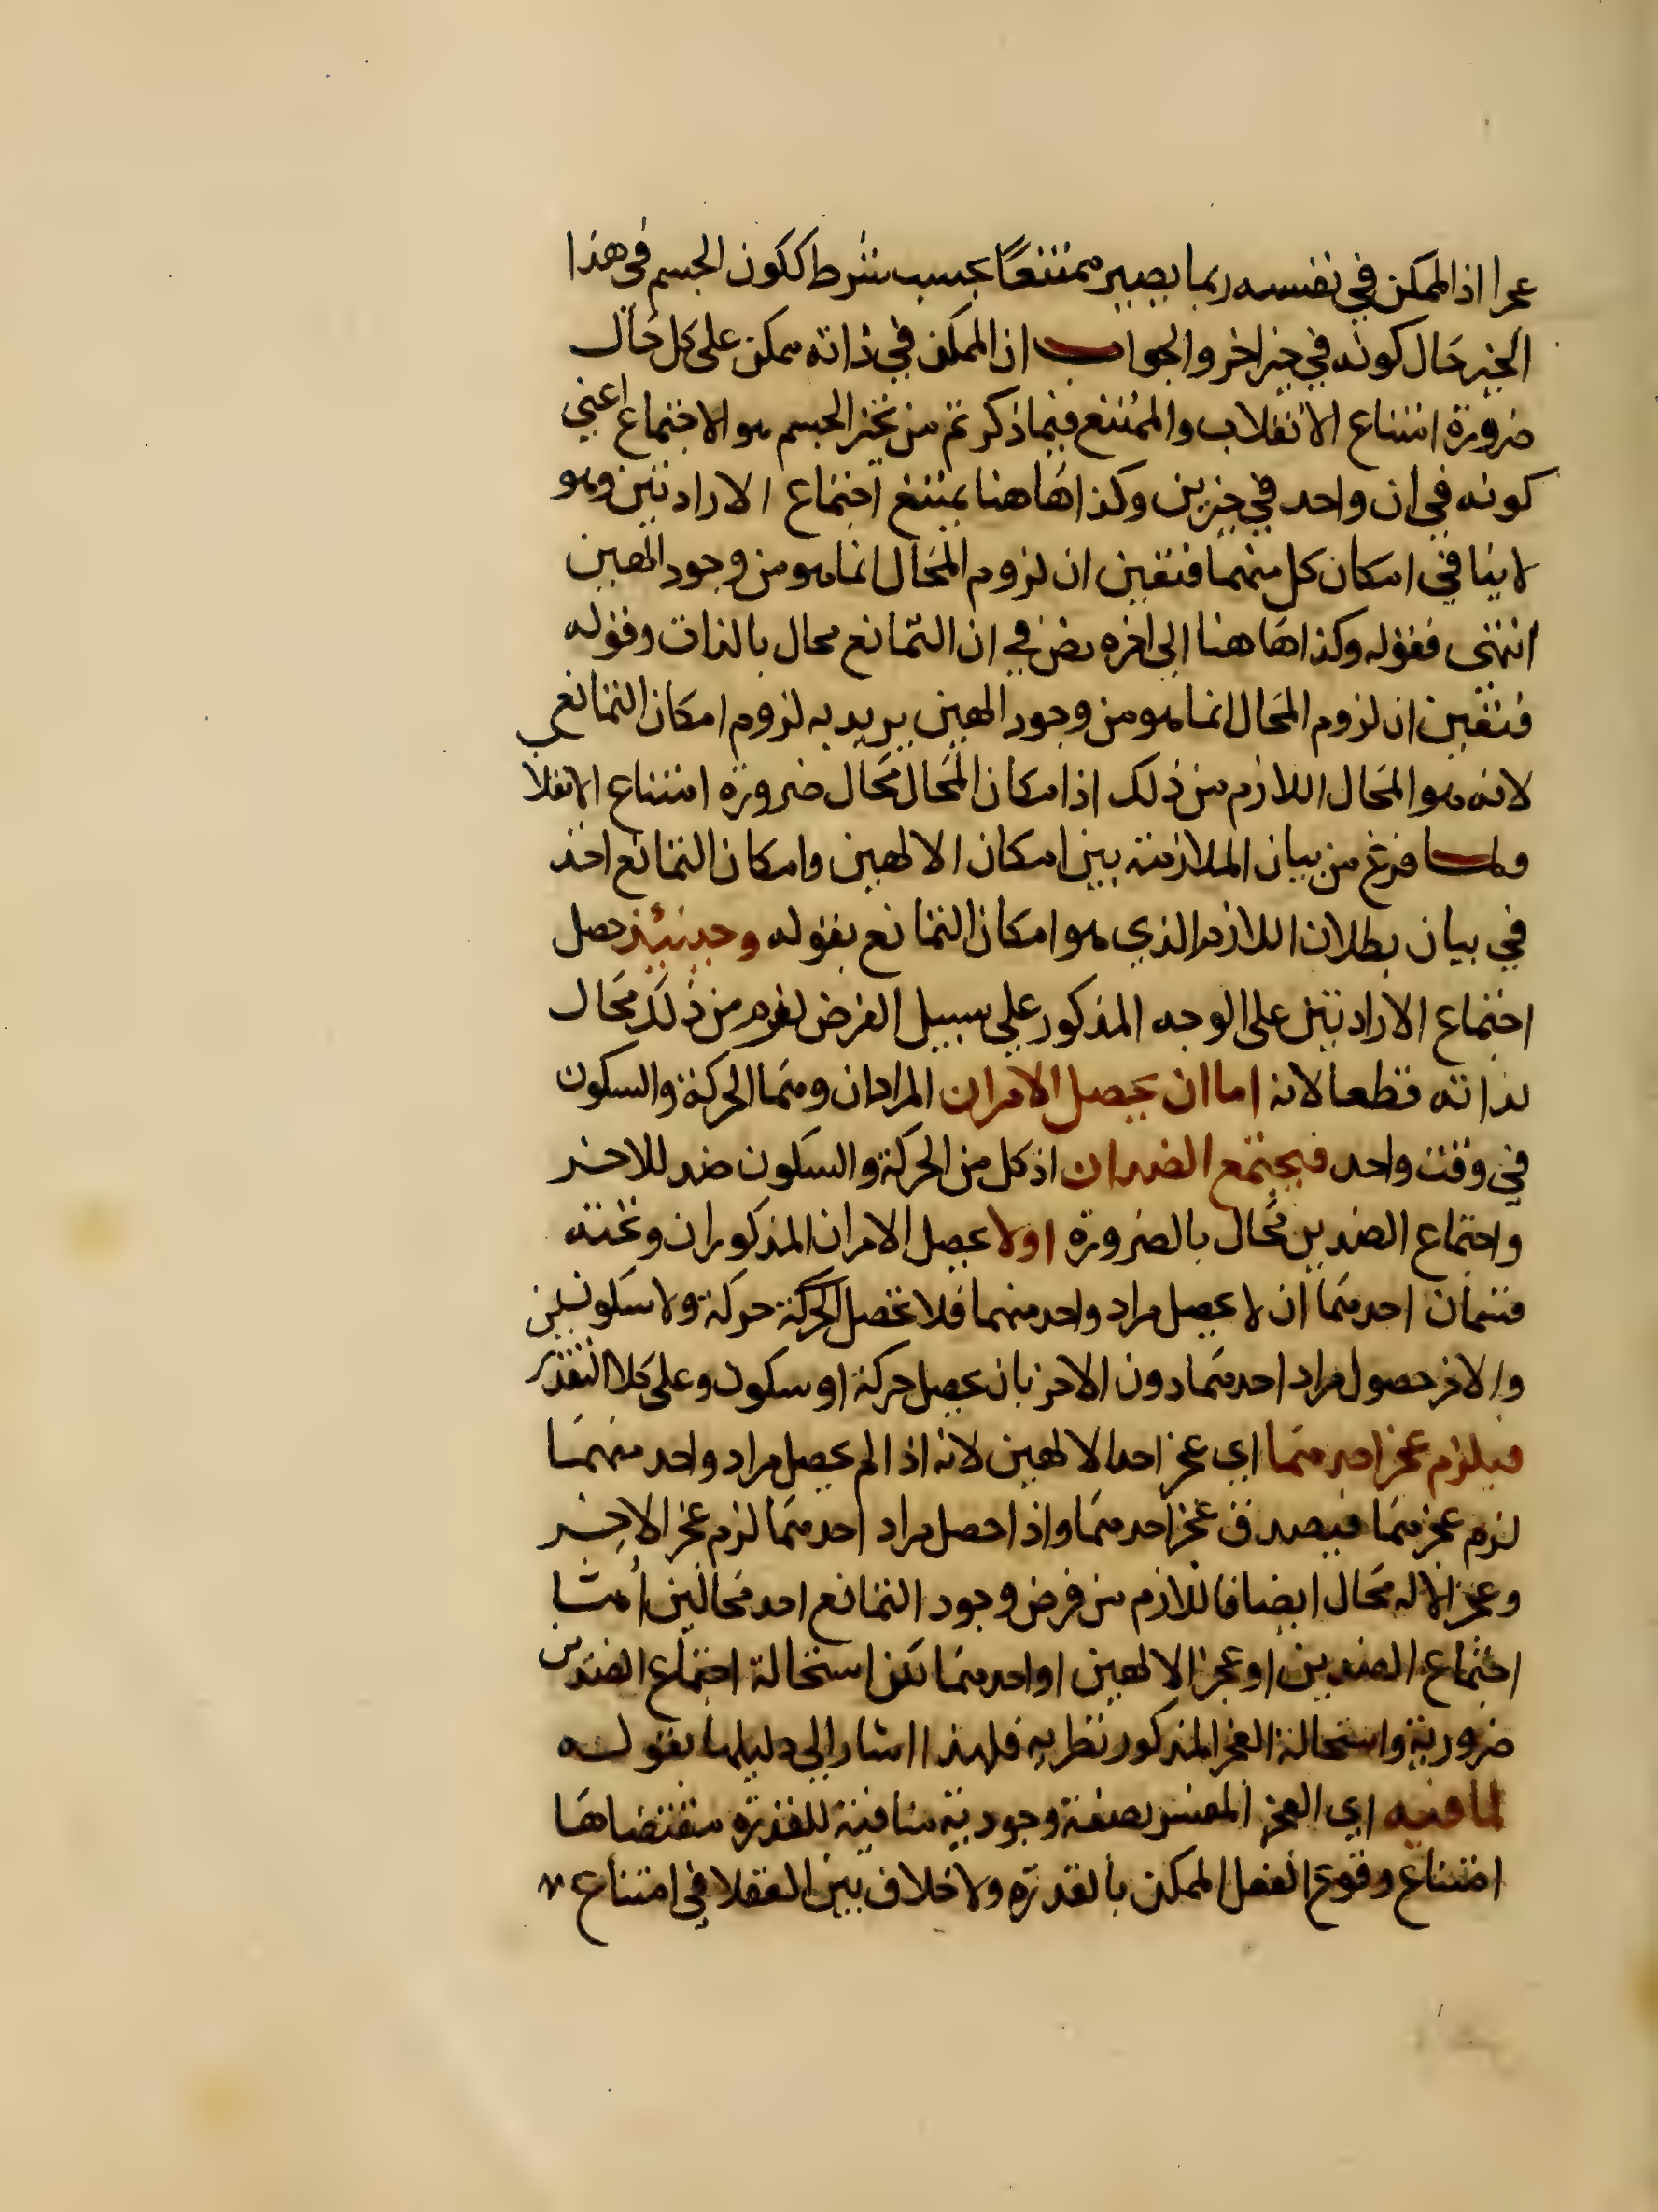 عمرا اذ الممكن في نفسه ربما يصير ممتنعًا بحسب شرط ككون الجسم في هذا
الحيز حال كونه في حيز اخر والجواب ان الممكن في ذاته ممكن على كل حال
ضرورة امتناع الانقلاب والممتنع فيما ذكرتم من تحيز الجسم هو الاجتماع اعني
كونه في ان واحد في حيزين وكذا هاهنا يمتنع اجتماع الارادتين وهو
لا ينافي امكان كل منهما فتعين ان لزوم المحال انما هو من وجود الهين
انتهى فقوله وكذا هاهنا الى اخره نص في ان التمانع محال بالذات وقوله
فتعين ان لزوم المحال انما هو من وجود الهين يريد به لزوم امكان التمانع
لانه هو المحال اللازم من ذلك اذ امكان المحال محال ضرورة امتناع الانقلاب
ولما فرغ من بيان الملازمة بين امكان الالهين وامكان التمانع اخذ
في بيان بطلان اللازم الذي هو امكان التمانع بقوله وحينئذ حصل
اجتماع الارادتين على الوجه المذكور على سبيل الفرض لزم من ذلك محال
بذاته قطعا لانه اما ان يحصل الامران المرادان وهما الحركة والسكون
في وقت واحد فيجتمع الضدان اذ كل من الحركة والسكون ضد للاخر
واجتماع الضدين محال بالضرورة اولا يحصل الامران المذكوران وتحته
قسمان احدهما ان لا يحصل مراد واحد منهما فلا تحصل الحركة حركة ولا سكون
والاخر حصول مراد احدهما دون الاخر بان يحصل حركة او سكون وعلى كلا التقدير
فيلزم عجز احدهما اي عجز احد الالهين لانه اذا لم يحصل مراد واحد منهما
لزم عجزهما فيصدق عجز احدهما واذا حصل مراد احدهما لزم عجز الاخر
وعجز الاله محال ايضا فاللازم من فرض وجود التمانع احد محالين اما
اجتماع الضدين او عجز الالهين او احدهما لكن استحالة اجتماع الضدين
ضرورية واستحالة العجز المذكور نظرية فلهذا اشار الى دليلها بقوله
لما فيه اي العجز المفسر بصفة وجودية منافية للقدرة مقتضاها
امتناع وقوع الفعل الممكن بالقدرة ولا خلاف بين العقلا في امتناع